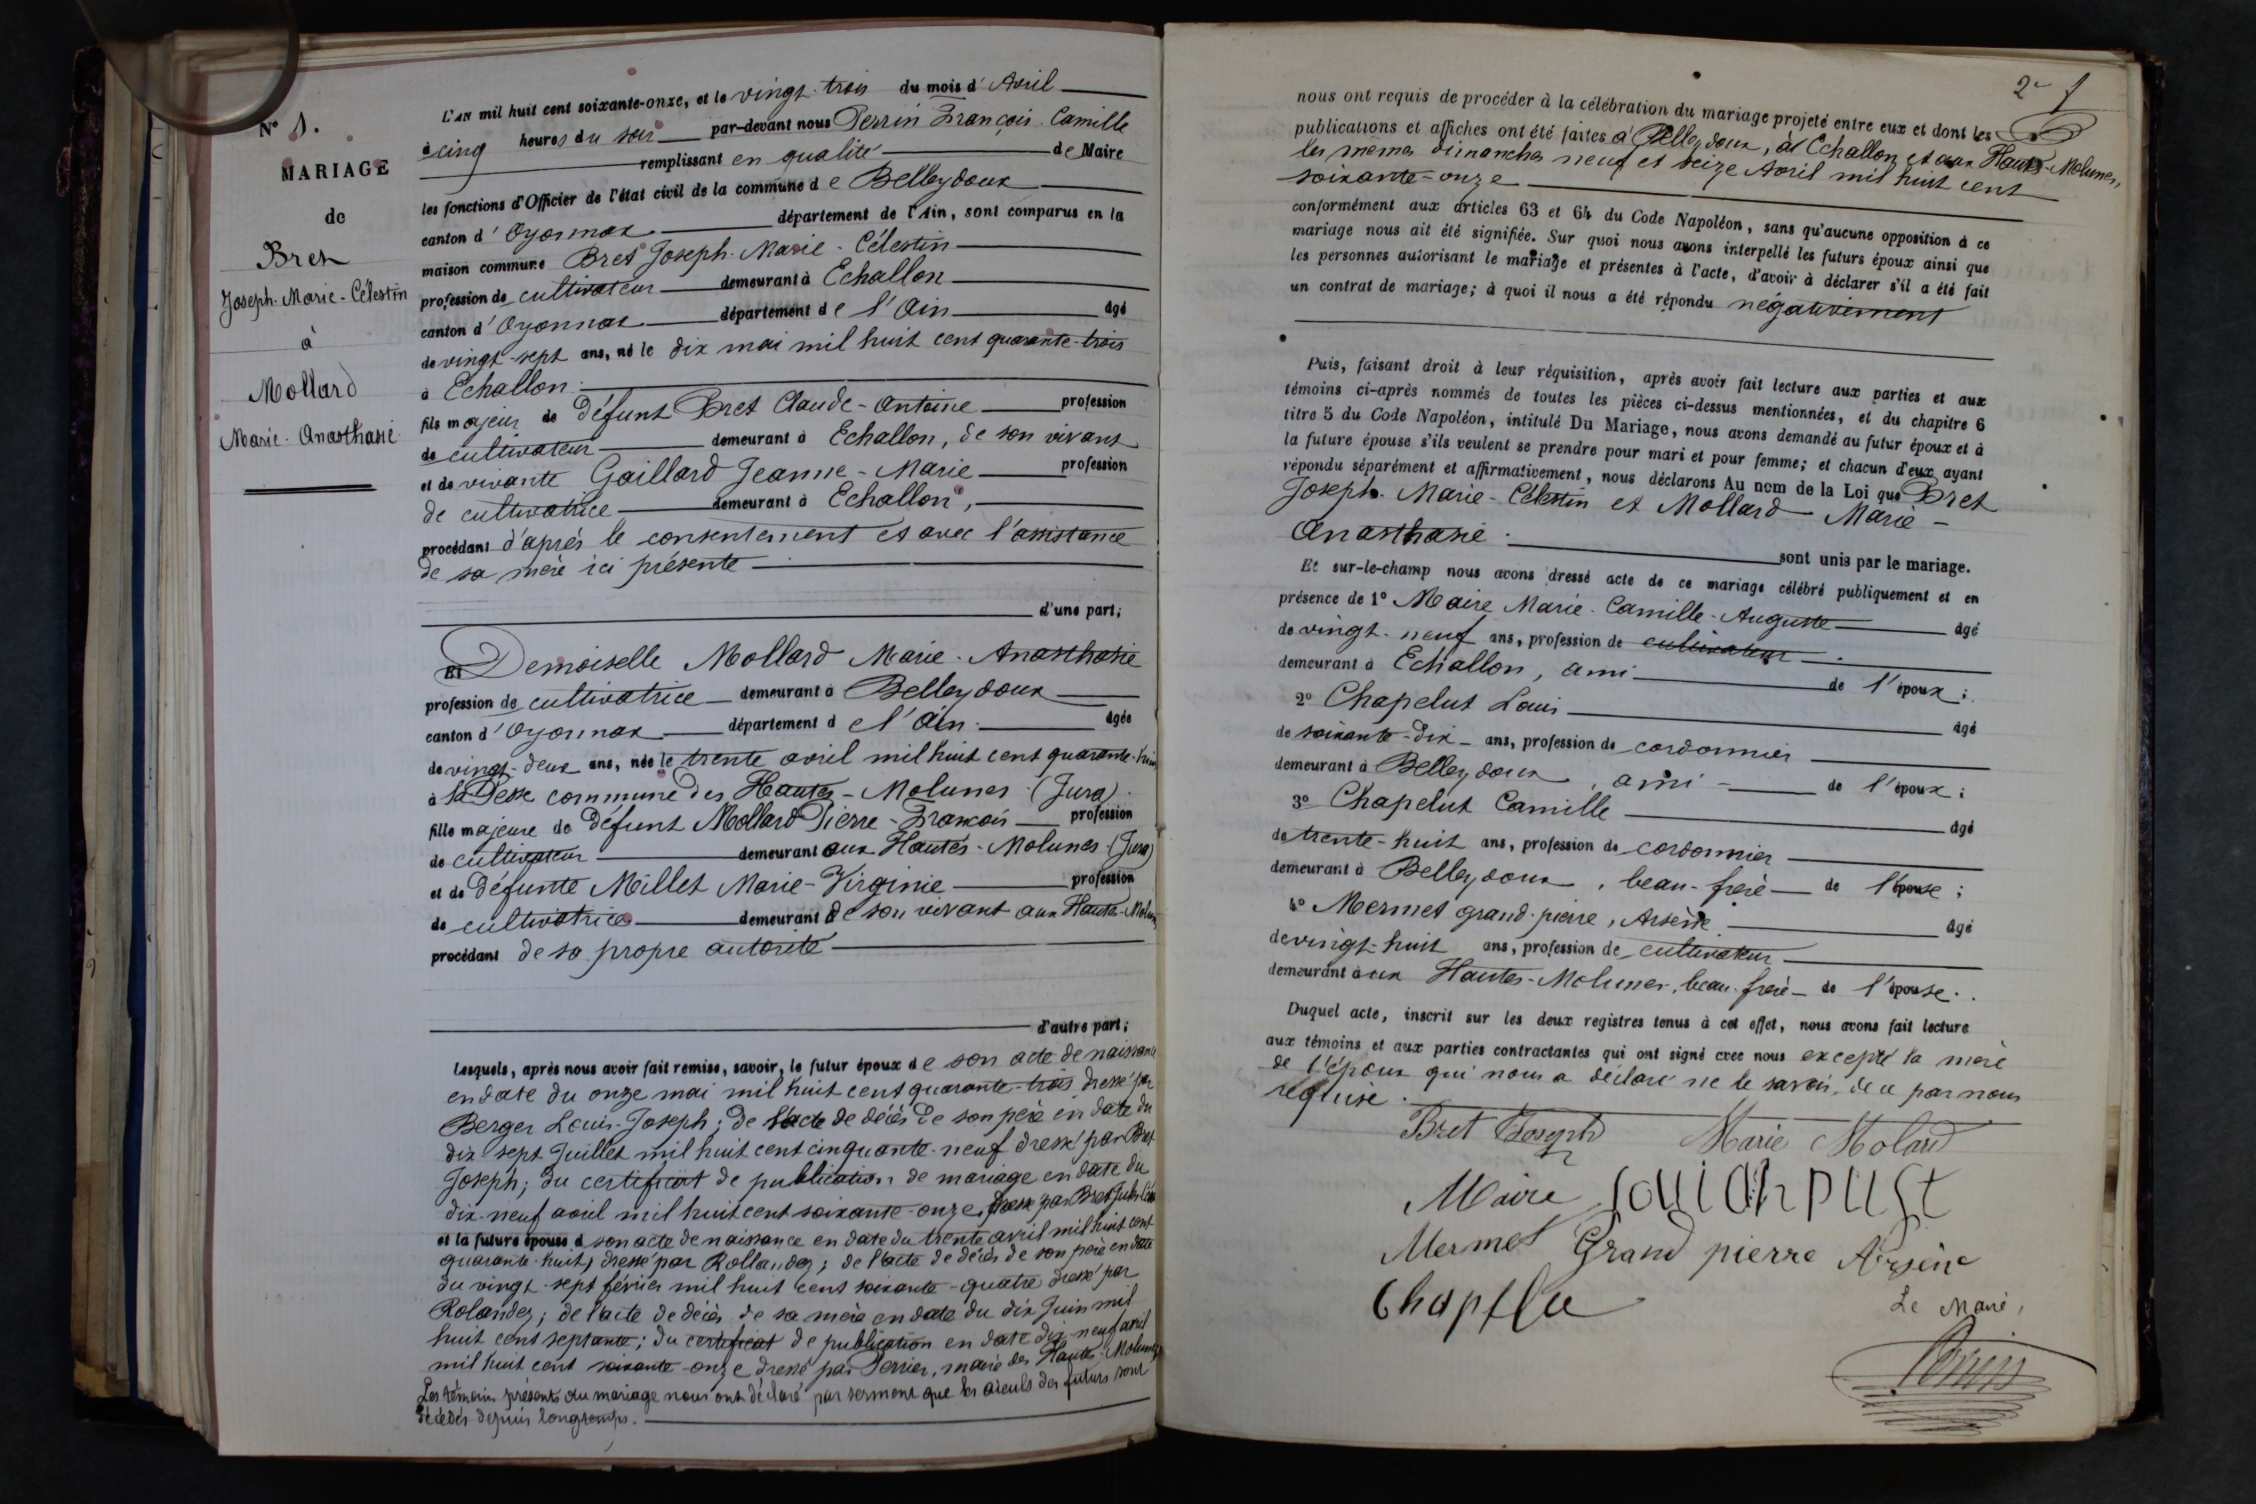 N° 1.
MARIAGE
de
Bret
Joseph-Marie-Célestin
à
Mollard
Marie-Anasthasie
L'AN mil huit cent soixante-onze, et le vingt-trois du mois d'Avril
à cinq heures du soir par-devant nous Perrin François-Camille
remplissant en qualité de Maire
les fonctions d'Officier de l'état civil de la commune de Belleydoux
canton d'Oyonnax département de l'Ain, sont comparus en la
maison commune Bret Joseph-Marie-Célestin
profession de cultivateur demeurant à Echallon
canton d'Oyonnax département de l'Ain âgé
de vingt-sept ans, né le dix mai mil huit cent quarante-trois
à Echallon
fils majeur de défunt Bret Claude-Antoine profession
de cultivateur demeurant à Echallon, de son vivant
et de vivante Gaillard Jeanne-Marie profession
de cultivatrice demeurant à Echallon,
procédant d'après le consentement et avec l'assistance
de sa mère ici présente
d'une part;
Et Demoiselle Mollard Marie-Anasthasie
profession de cultivatrice demeurant à Belleydoux
canton d'Oyonnax département de l'Ain âgée
de vingt-deux ans, née le trente avril mil huit cent quarante-huit
à la commune des Hautes-Molunes (Jura)
fille majeure de défunt Mollard Pierre-François profession
de cultivateur demeurant aux Hautes-Molunes (Jura)
et de défunte Millet Marie-Virginie profession
de cultivatrice demeurant de son vivant aux Hautes-Molunes
procédant de sa propre autorité
d'autre part;
Lesquels, après nous avoir fait remise, savoir, le futur époux de son acte de naissance
en date du onze mai mil huit cent quarante-trois dressé par
Berger Louis-Joseph; de l'acte de décès de son père en date du
dix-sept Juillet mil huit cent cinquante-neuf dressé par Bret
Joseph; du certificat de publication de mariage en date du
dix-neuf avril mil huit cent soixante-onze, dressé par Bret
et la future épouse d son acte de naissance en date du trente avril mil huit cent
quarante-huit, dressé par Rollandez; de l'acte de décès de son père en date
du vingt-sept février mil huit cent soixante-quatre dressé par
Rolandez; de l'acte de décès de sa mère en date du dix Juin mil
huit cent septante; du certificat de publication en date dix-neuf avril
mil huit cent soixante-onze dressé par Perrier, maire des Hautes-Molunes
Les témoins présents au mariage nous ont déclaré par serment que les aïeuls des futurs sont
décédés depuis longtemps.
2
nous ont requis de procéder à la célébration du mariage projeté entre eux et dont les
publications et affiches ont été faites à Belleydoux, à Echallon et aux Hautes-Molunes,
les mêmes dimanches neuf et seize Avril mil huit cent
soixante-onze
conformément aux articles 63 et 64 du Code Napoléon, sans qu'aucune opposition à ce
mariage nous ait été signifiée. Sur quoi nous avons interpellé les futurs époux ainsi que
les personnes autorisant le mariage et présentes à l'acte, d'avoir à déclarer s'il a été fait
un contrat de mariage; à quoi il nous a été répondu négativement
Puis, faisant droit à leur réquisition, après avoir fait lecture aux parties et aux
témoins ci-après nommés de toutes les pièces ci-dessus mentionnées, et du chapitre 6
titre 5 du Code Napoléon, intitulé Du Mariage, nous avons demandé au futur époux et à
la future épouse s'ils veulent se prendre pour mari et pour femme; et chacun d'eux ayant
répondu séparément et affirmativement, nous déclarons Au nom de la Loi que Bret
Joseph-Marie-Célestin et Mollard Marie-
Anasthasie
sont unis par le mariage.
Et sur-le-champ nous avons dressé acte de ce mariage célébré publiquement et en
présence de 1° Maire Marie-Camille-Auguste âgé
de vingt-neuf ans, profession de cultivateur
demeurant à Echallon, ami de l'époux;
2° Chapelut Louis âgé
de soixante-dix ans, profession de cordonnier
demeurant à Belleydoux, ami de l'époux;
3° Chapelut Camille âgé
de trente-huit ans, profession de cordonnier
demeurant à Belleydoux, beau-frère de l'épouse;
4° Mermet grand-pierre, Arsène âgé
de vingt-huit ans, profession de cultivateur
demeurant aux Hautes-Molunes, beau-frère de l'épouse.
Duquel acte, inscrit sur les deux registres tenus à cet effet, nous avons fait lecture
aux témoins et aux parties contractantes qui ont signé avec nous excepté la mère
de l'époux qui nous a déclaré ne le savoir, de ce par nous
requise.
Bret Joseph Marie Molard
Maire
Mermet Grand pierre Arsène
Le Maire,
Perrin